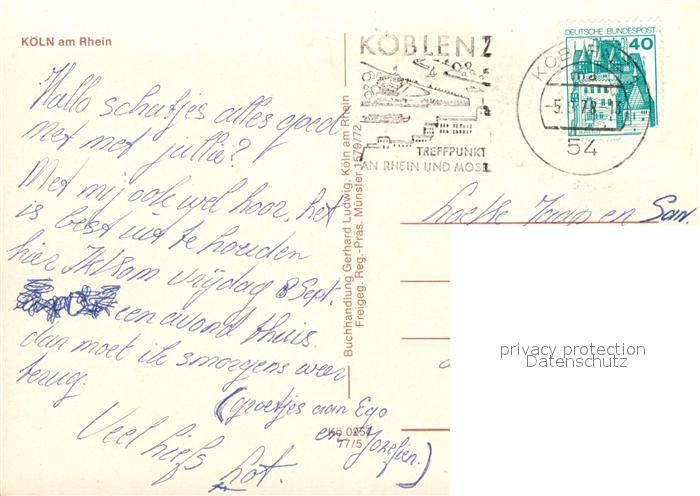 KÖLN am Rhein
Hallo schatjes alles goed
met jullie?
Met mij ook wel hoor, het
is best uit te houden
hier Ik kom vrijdag 8 Sept.
een avond thuis.
dan moet ik smorgens weer
terug.
(groetjes aan Ego
en Jozefien.)
Veel liefs Lot.
Buchhandlung Gerhard Ludwig, Köln am Rhein
Freigeg. Reg.-Präs. Münster 1579/72
Kö 0257
77/5
KOBLENZ
TREFFPUNKT
AN RHEIN UND MOSEL
KOBLENZ
ma
-5. 78
54
DEUTSCHE BUNDESPOST
40
Jaap en San
privacy protection
Datenschutz